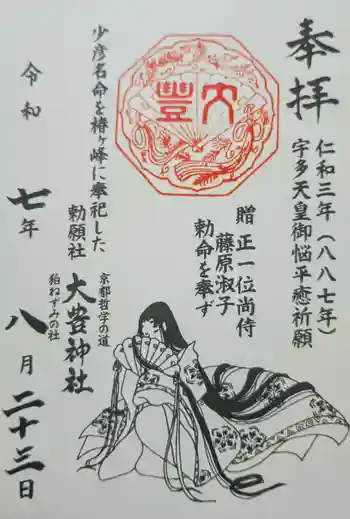 奉拝
仁和三年（八八七年）
宇多天皇御悩平癒祈願
贈 正一位尚侍
藤原淑子
勅命を奉ず
大豊
少彦名命を椿ヶ峰に奉祀した
勅願社
京都哲学の道
大豊神社
狛ねずみの社
令和
七年
八月
二十三日